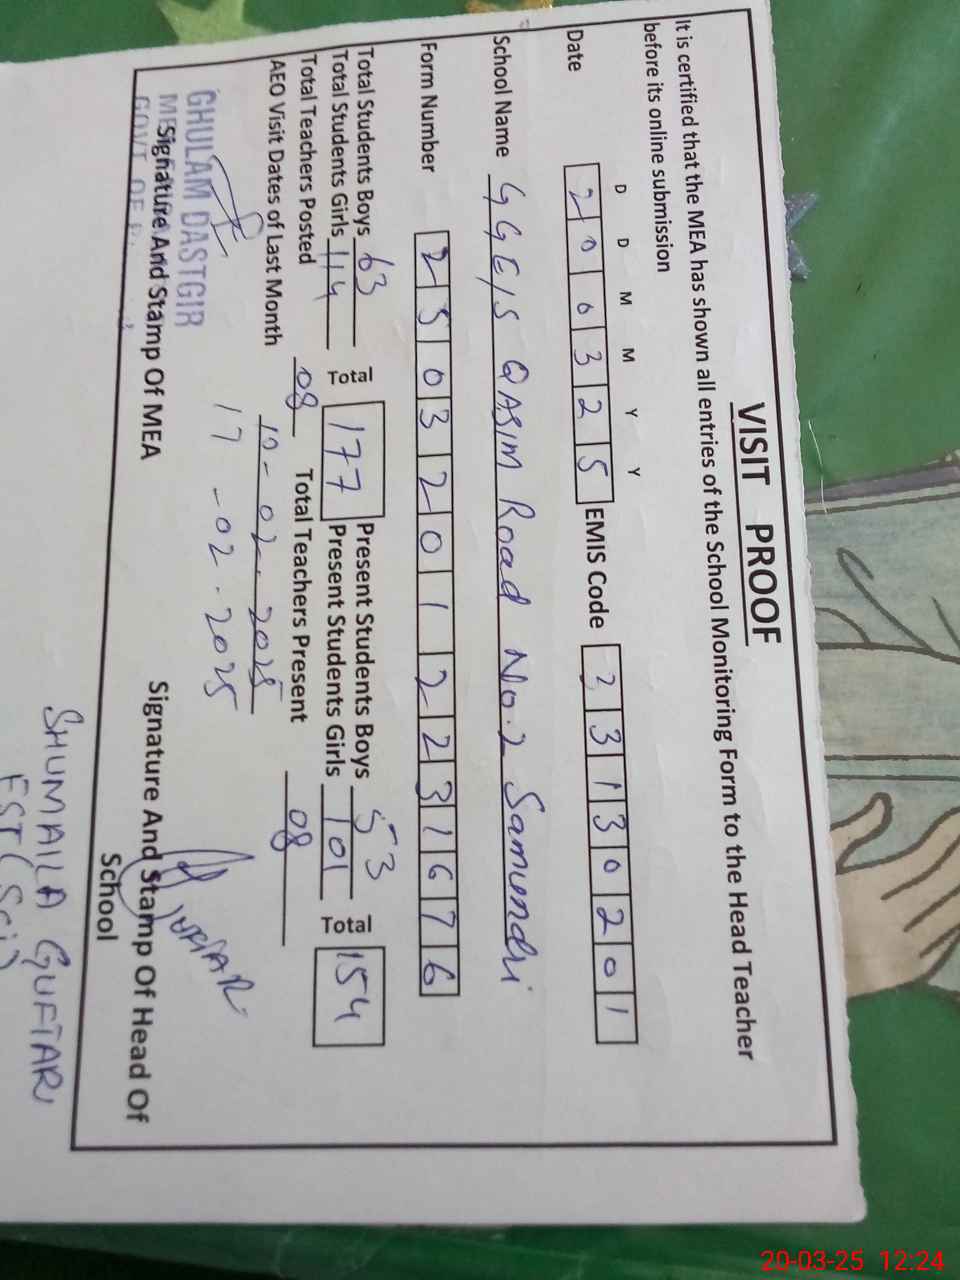 VISIT PROOF
It is certified that the MEA has shown all entries of the School Monitoring Form to the Head Teacher
before its online submission
D D M M Y Y
Date 2 0 0 3 2 5 EMIS Code 3 3 1 3 0 2 0 1
School Name GGE/S QASIM Road No.2 Samundri
Form Number 2 5 0 3 2 0 1 2 2 3 1 6 7 6
Total Students Boys 63 Total 177 Present Students Boys 53 Total 154
Total Students Girls 114 Present Students Girls 101
Total Teachers Posted 08 Total Teachers Present 08
AEO Visit Dates of Last Month 10-02.2025
17-02.2025
GHULAM DASTGIR
GOVT OF
Signature And Stamp Of MEA
Signature And Stamp Of Head Of
School
SHUMAILA GUFTAR
EST (Sci)
20-03-25 12:24